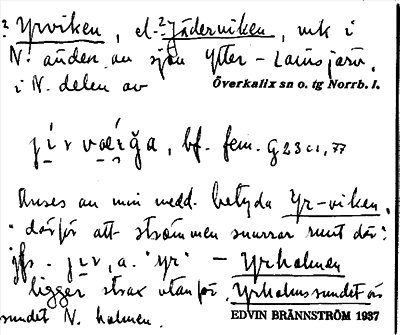 ? Yrviken, el. ? Jäderviken, vik i
N. änden av sjön Ytter-Lansjärv,
i N. delen av Överkalix sn o. tg Norrb. l.
bf. fem. G 23 c 1, 77
Anses av min medd. betyda Yr-viken,
därför att strömmen snurrar runt där:
jfr. a. "yr" - Yrholmen
ligger strax utanför. Yrholmssundet är
sundet N. holmen. EDVIN BRÄNNSTRÖM 1937